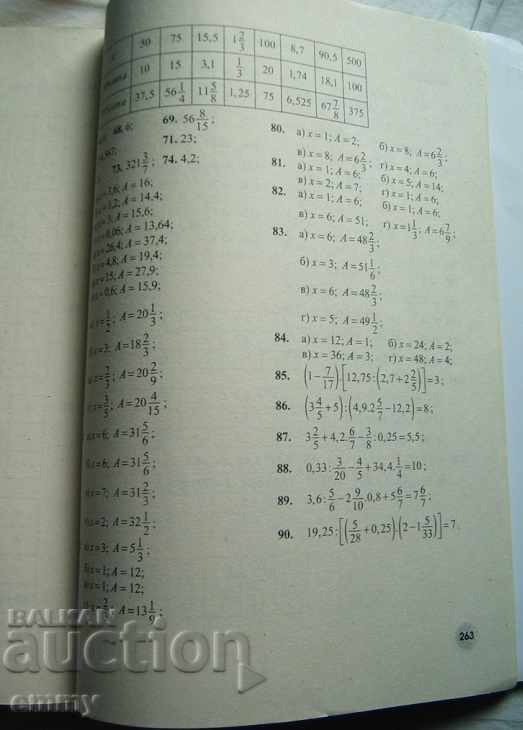 50 75 15,5 1 2/3 100 8,7 90,5 500
10 15 3,1 1/3 20 1,74 18,1 100
37,5 56 1/4 11 5/8 1,25 75 6,525 67 7/8 375
68. 6; 69. 56 8/15;
71. 23;
73. 321 3/7; 74. 4,2;
A=16;
x=1,2; A=14,4;
x=3; A=15,6;
A=13,64;
x=26,4; A=37,4;
x=4,8; A=19,4;
x=15; A=27,9;
x=0,6; A=15,9;
x=1/2; A=20 1/3;
x=3; A=18 2/3;
x=2/3; A=20 2/9;
x=3/5; A=20 4/15;
x=6; A=31 5/6;
x=6; A=31 5/6;
x=7; A=31 2/3;
x=2; A=32 1/2;
x=3; A=5 1/3;
x=1; A=12;
x=1; A=12;
A=13 1/9;
80. а) x=1; A=2; б) x=8; A=6 2/3;
в) x=8; A=6 2/3; г) x=4; A=6;
81. а) x=1; A=6; б) x=5; A=14;
в) x=2; A=7; г) x=1; A=6;
82. а) x=1; A=6; б) x=1; A=6;
в) x=6; A=51; г) x=1 1/3; A=6 2/9;
83. а) x=6; A=48 2/3;
б) x=3; A=51 1/6;
в) x=6; A=48 2/3;
г) x=5; A=49 1/2;
84. а) x=12; A=1; б) x=24; A=2;
в) x=36; A=3; г) x=48; A=4;
85. (1−7/17).[12,75:(2,7+2 2/5)]=3;
86. (3 4/5+5):(4,9.2 5/7−12,2)=8;
87. 3 2/5+4,2.6/7−3/8:0,25=5,5;
88. 0,33:3/20−4/5+34,4.1/4=10;
89. 3,6:5/6−2 9/10.0,8+5 6/7=7 6/7;
90. 19,25:[(5/28+0,25).(2−1 5/33)]=7.
263
BALKAN
auction
emmy